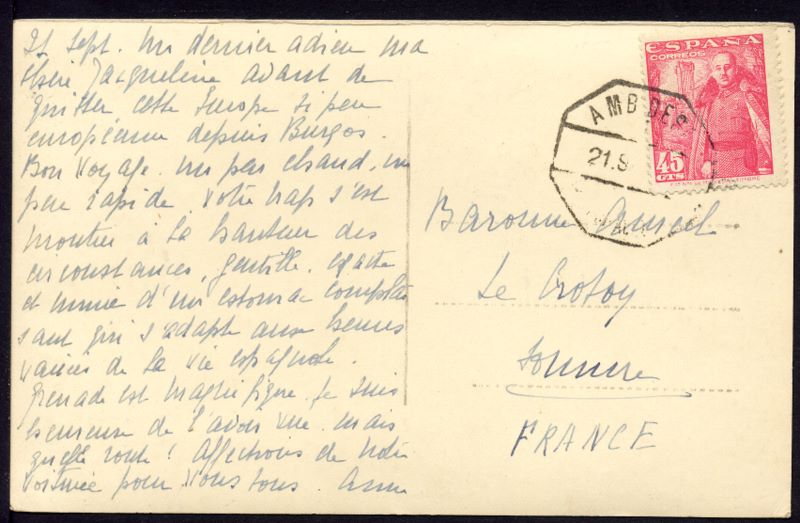 21 Sept. Un dernier adieu ma
chère Jacqueline avant de
quitter cette Europe si peu
européenne depuis Burgos.
Bon voyage. un peu chaud, un
peu rapide. Votre Maps s'est
montrée à la hauteur des
circonstances, gentille, exacte
et munie d'un estomac complai
sant qui s'adapte aux heures
variées de la vie espagnole.
Grenade est magnifique. Je suis
heureuse de l'avoir vue. mais
quelle route! Affections de notre
voiturée pour vous tous. Anne
ESPAÑA
CORREOS
45
CTS
AMB DES
21.S
Baronne
Le Crotoy
Somme
FRANCE